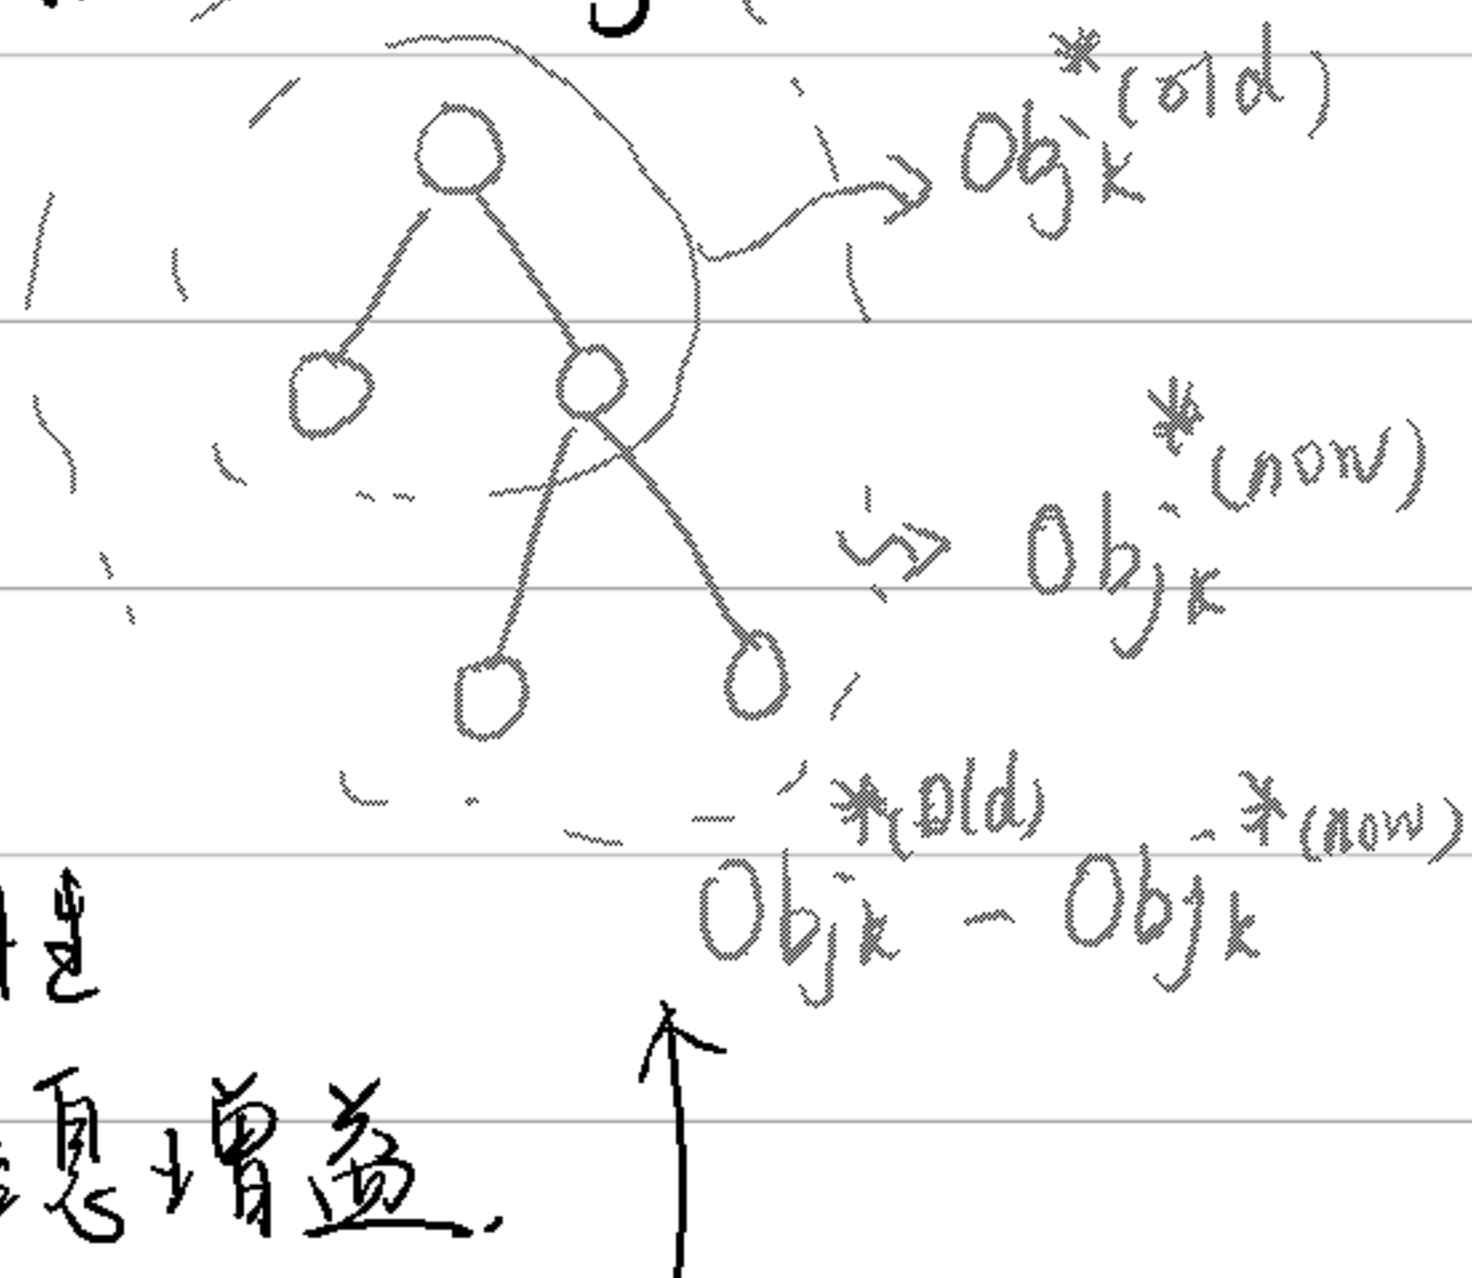 Obj_k^*(old)
Obj_k^*(now)
Obj_k^*(old) - Obj_k^*(now)
息增益.